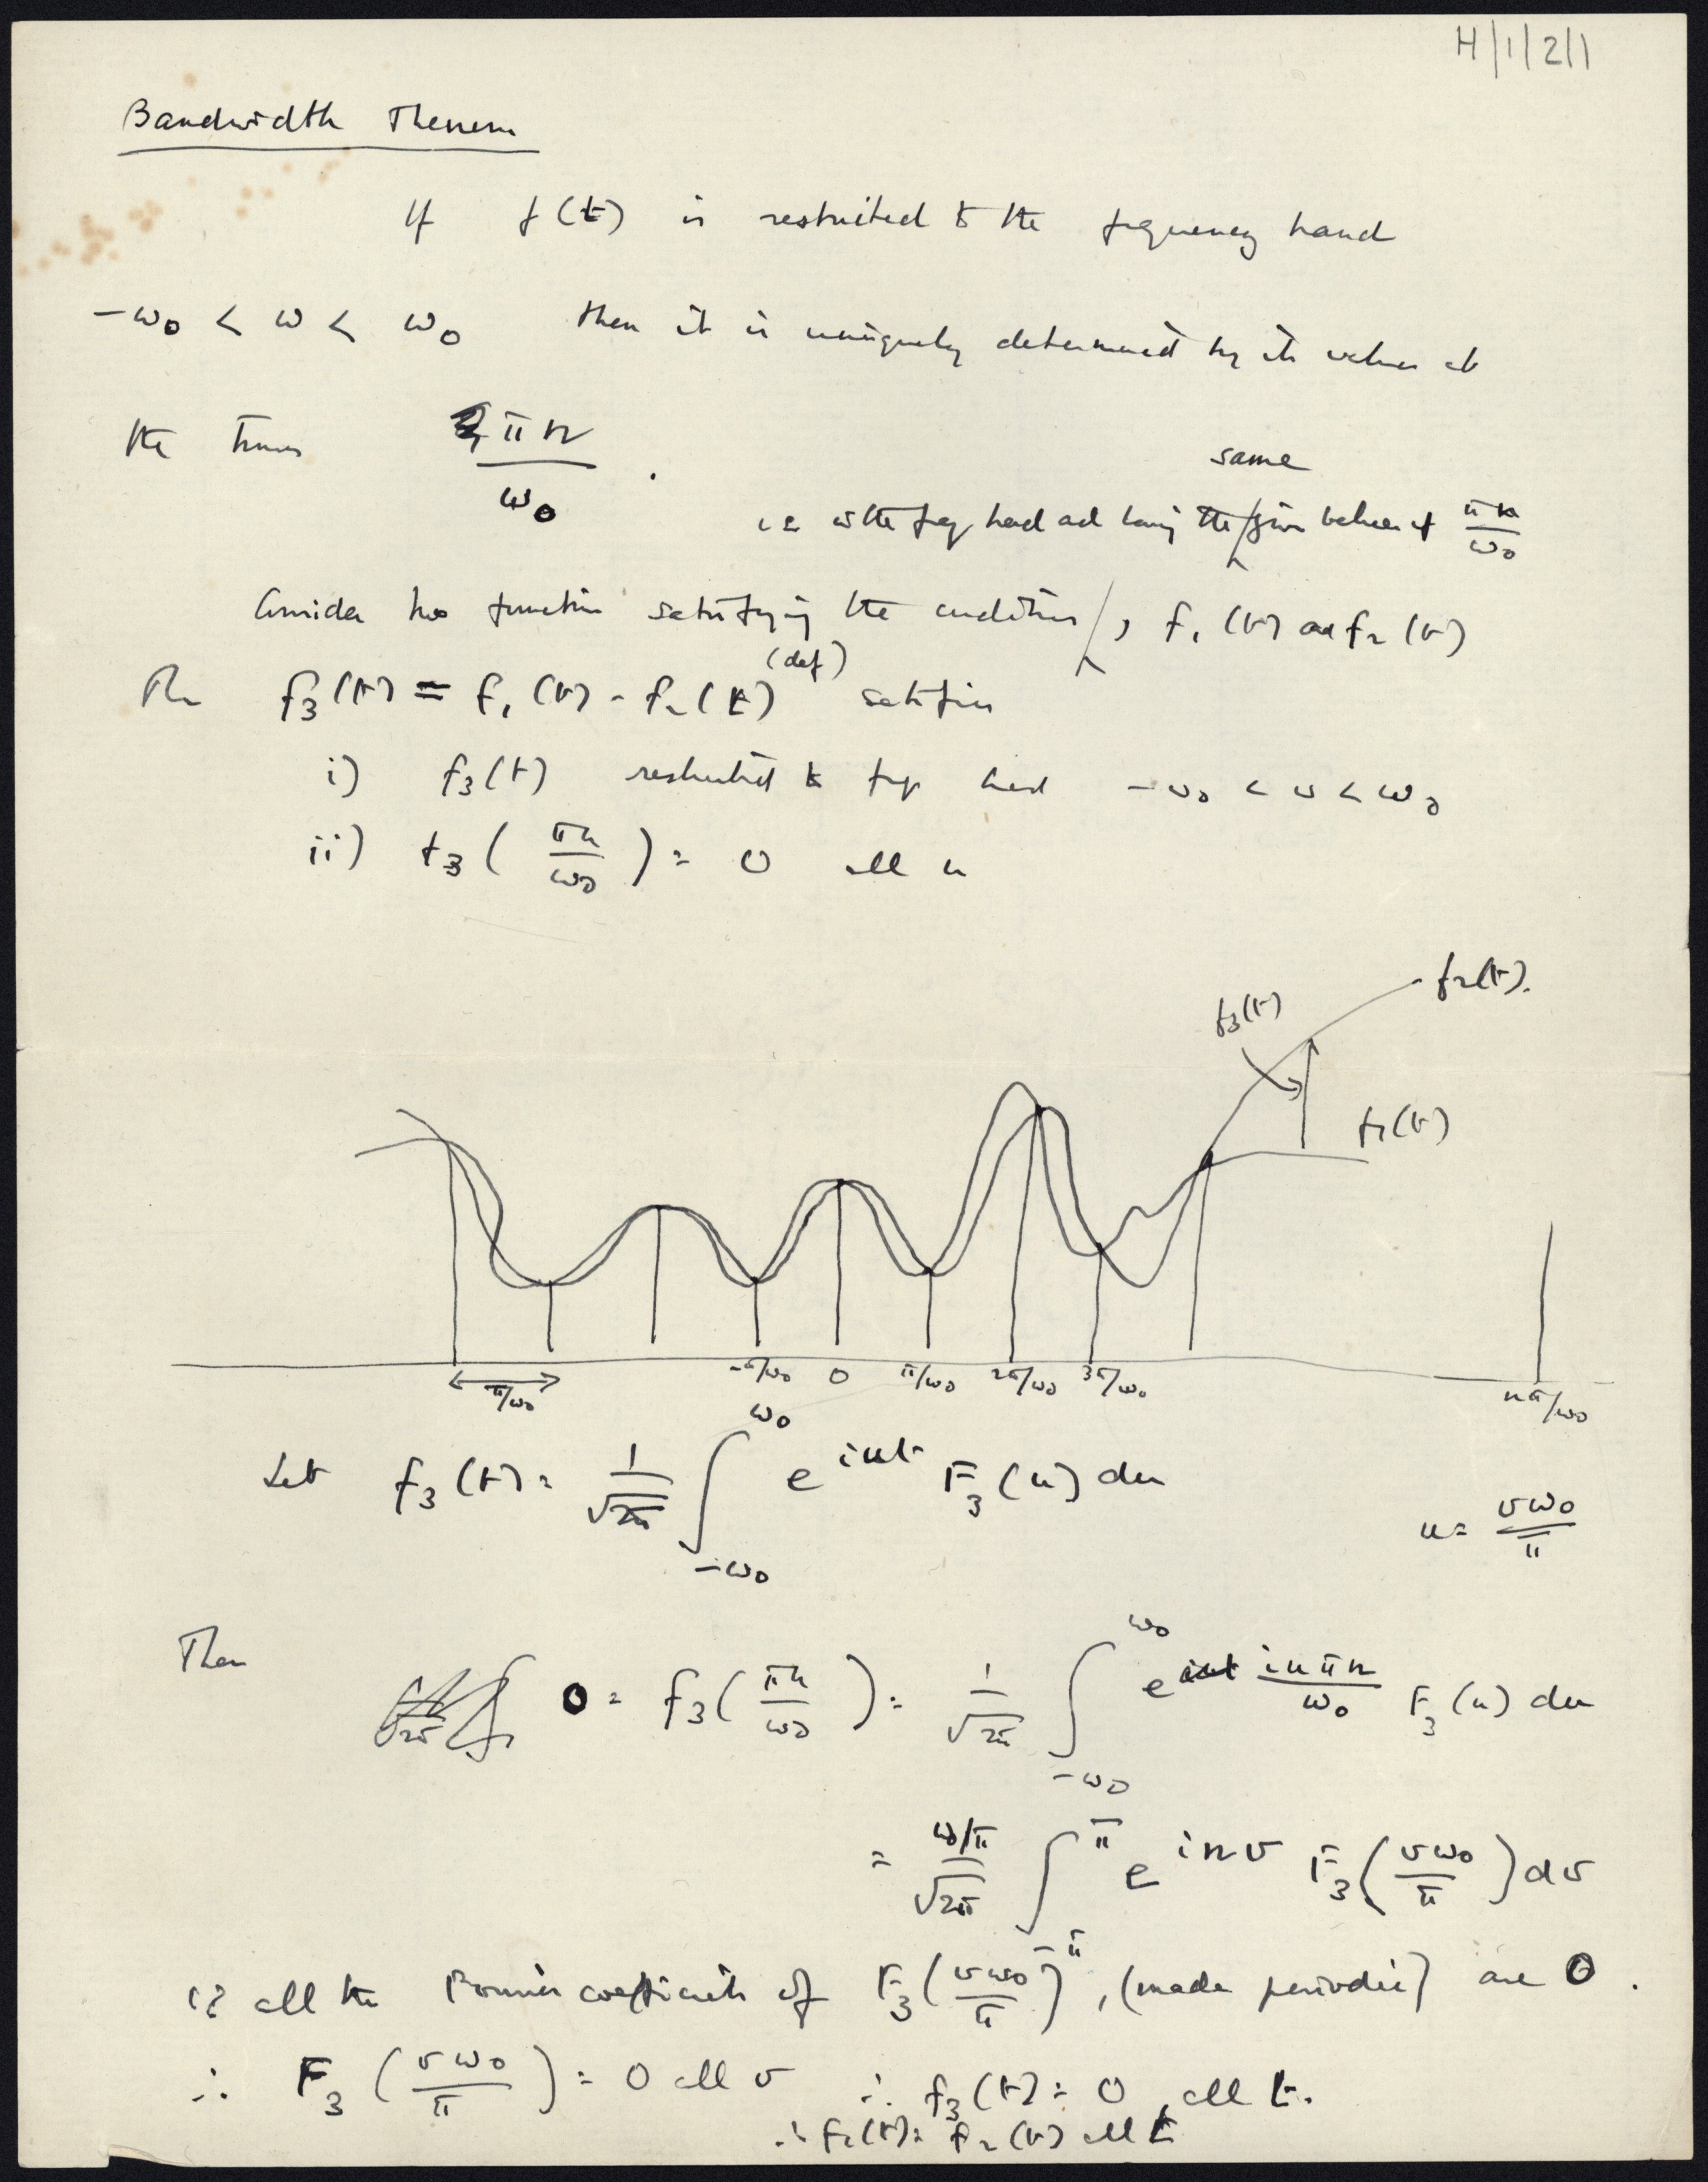 H/1/2/1
Bandwidth Theorem
If f(t) is restricted to the frequency band
-ω₀ < ω < ω₀ then it is uniquely determined by its values at
the times πn/ω₀ .
same
ie in the freq band and having the given values at πn/ω₀
Consider two functions satisfying the condition, f₁(t) and f₂(t)
(def)
Then f₃(t) = f₁(t) - f₂(t) satisfies
i) f₃(t) restricted to freq band -ω₀ < ω < ω₀
ii) f₃(πn/ω₀) = 0 all n
f₂(t).
f₃(t)
f₁(t)
-π/ω₀ 0 π/ω₀ 2π/ω₀ 3π/ω₀ nπ/ω₀
π/ω₀
Let f₃(t) = 1/√2π ∫_{-ω₀}^{ω₀} e^{iut} F₃(u) du
u = vω₀/π
Then 0 = f₃(πn/ω₀) = 1/√2π ∫_{-ω₀}^{ω₀} e^{iuπn/ω₀} F₃(u) du
= ω₀/π/√2π ∫_{-π}^{π} e^{inv} F₃(vω₀/π) dv
ie all the Fourier coefficients of F₃(vω₀/π), (made periodic) are 0.
∴ F₃(vω₀/π) = 0 all v ∴ f₃(t) = 0, all t.
∴ f₁(t) = f₂(t) all t